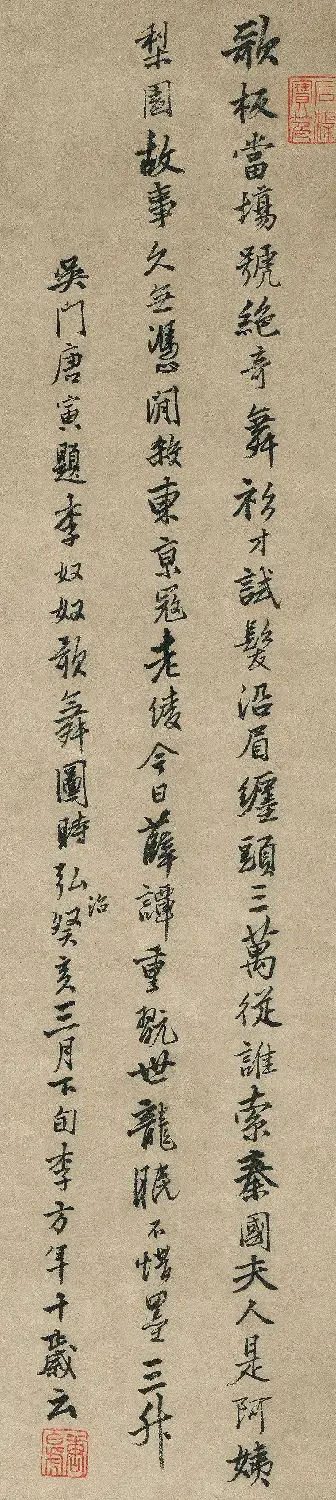 石渠寶笈
歌板當場號絕奇舞衫才試髮沿眉纏頭三萬從誰索秦國夫人是阿姨
梨園故事久無憑閒殺東京寇老綾今日薛譚重翫世龍眠不惜墨三升
吳門唐寅題李奴奴歌舞圖時弘治癸亥三月下旬李方年十歲云